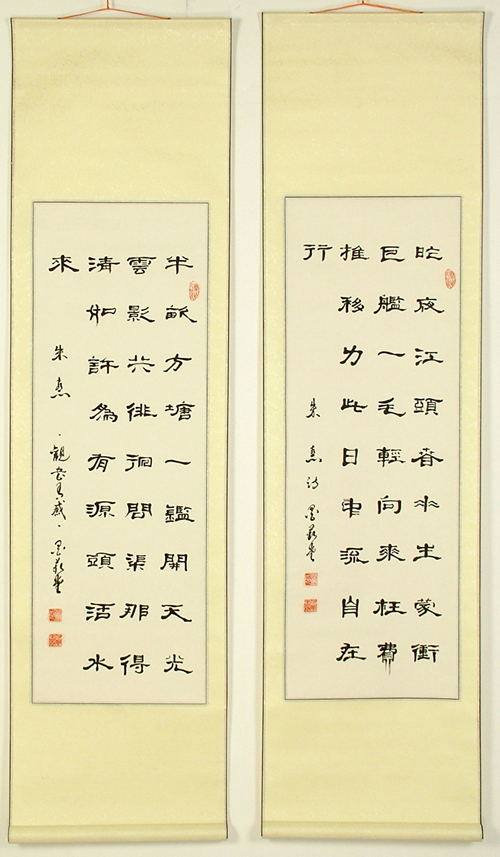 昨夜江頭春水生蒙衝
巨艦一毛輕向來枉費
推移力此日中流自在
行
朱熹詩
半畝方塘一鑑開天光
雲影共徘徊問渠那得
清如許為有源頭活水
來
朱熹·觀書有感·